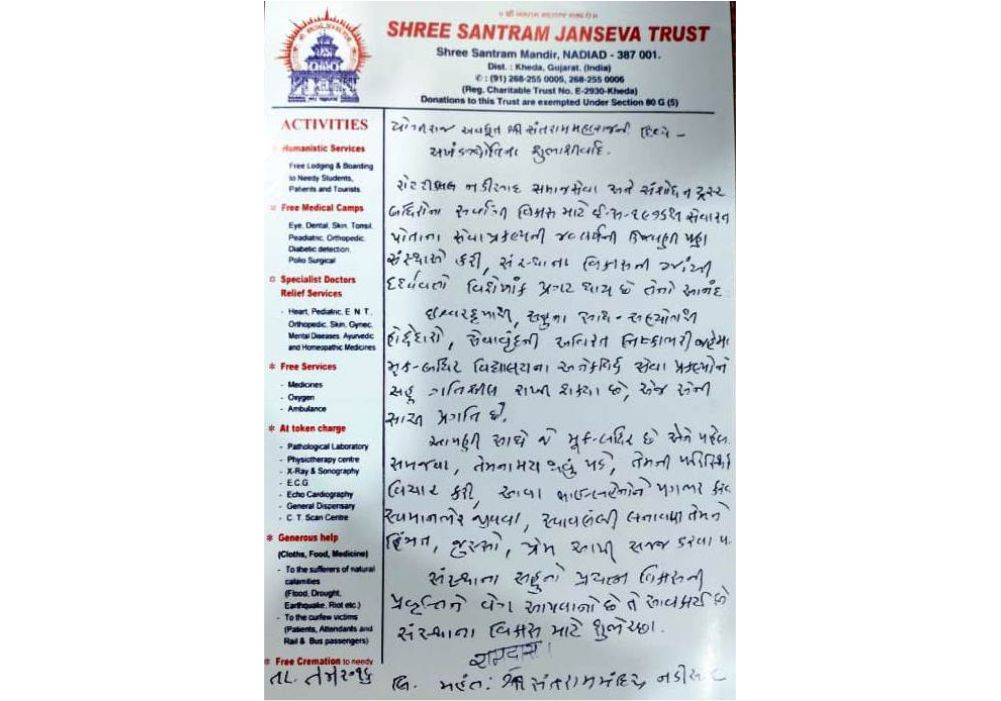 SHREE SANTRAM JANSEVA TRUST
Shree Santram Mandir, NADIAD - 387 001.
Dist. : Kheda, Gujarat. (India)
✆ : (91) 268-255 0005, 268-255 0006
(Reg. Charitable Trust No. E-2930-Kheda)
Donations to this Trust are exempted Under Section 80 G (5)
ACTIVITIES
Humanistic Services
Free Lodging & Boarding
to Needy Students,
Patients and Tourists.
Free Medical Camps
Eye, Dental, Skin, Tonsil,
Peadiatric, Orthopedic,
Diabetic detection,
Polio Surgical
Specialist Doctors
Relief Services
- Heart, Pediatric, E. N. T.,
Orthopedic, Skin, Gynec,
Mental Diseases, Ayurvedic
and Homeopathic Medicines
* Free Services
- Medicines
- Oxygen
- Ambulance
* At token charge
- Pathological Laboratory
- Physiotherapy centre
- X-Ray & Sonography
- E.C.G.
- Echo Cardiography
- General Dispensary
- C. T. Scan Centre
* Generous help
(Cloths, Food, Medicine)
- To the sufferers of natural
calamities
(Flood, Drought,
Earthquake, Riot etc.)
- To the curfew victims
(Patients, Attendants and
Rail & Bus passengers)
* Free Cremation to needy
યોગીરાજ અવધૂત શ્રી સંતરામ મહારાજની દિવ્ય -
અખંડજ્યોતિના શુભાશીર્વાદ.
નડીઆદ સમાજસેવા અને સંશોધન ટ્રસ્ટ
બધિરોના સર્વાંગી વિકાસ માટે
પોતાના સેવા પ્રકલ્પની
સંસ્થાએ કરી, સંસ્થાના વિકાસની ઝાંખી
દર્શાવતો વિશેષાંક પ્રગટ થાય છે તેનો આનંદ.
ઈશ્વરકૃપાથી, સહુના સાથ - સહયોગથી
હોદ્દેદારો, સેવાવૃંદની અવિરત
મૂક-બધિર વિદ્યાલયના અનેકવિધ સેવા પ્રકલ્પોને
સહુ ગતિશીલ રાખી શક્યા છે, એજ એની
સાચી પ્રગતિ છે.
આપણી સાથે જે મૂક-બધિર છે એને પહેલા
સમજવા, તેમનામય થવું પડે, તેમની પરિસ્થિતિ
વિચાર કરી, આવા ભાઈ-બહેનોને પગભર કરવા
સ્વમાનભેર જીવવા, સ્વાવલંબી બનાવવા તેમને
હિંમત, જુસ્સો, પ્રેમ આપી સજ્જ કરવા પ.
સંસ્થાના સહુનો પ્રયત્ન વિકાસની
પ્રવૃત્તિને વેગ આપવાનો છે તે આવકાર્ય છે
સંસ્થાના વિકાસ માટે શુભેચ્છા.
રામદાસ
લિ. મહંત: શ્રી સંતરામ મંદિર નડીઆદ